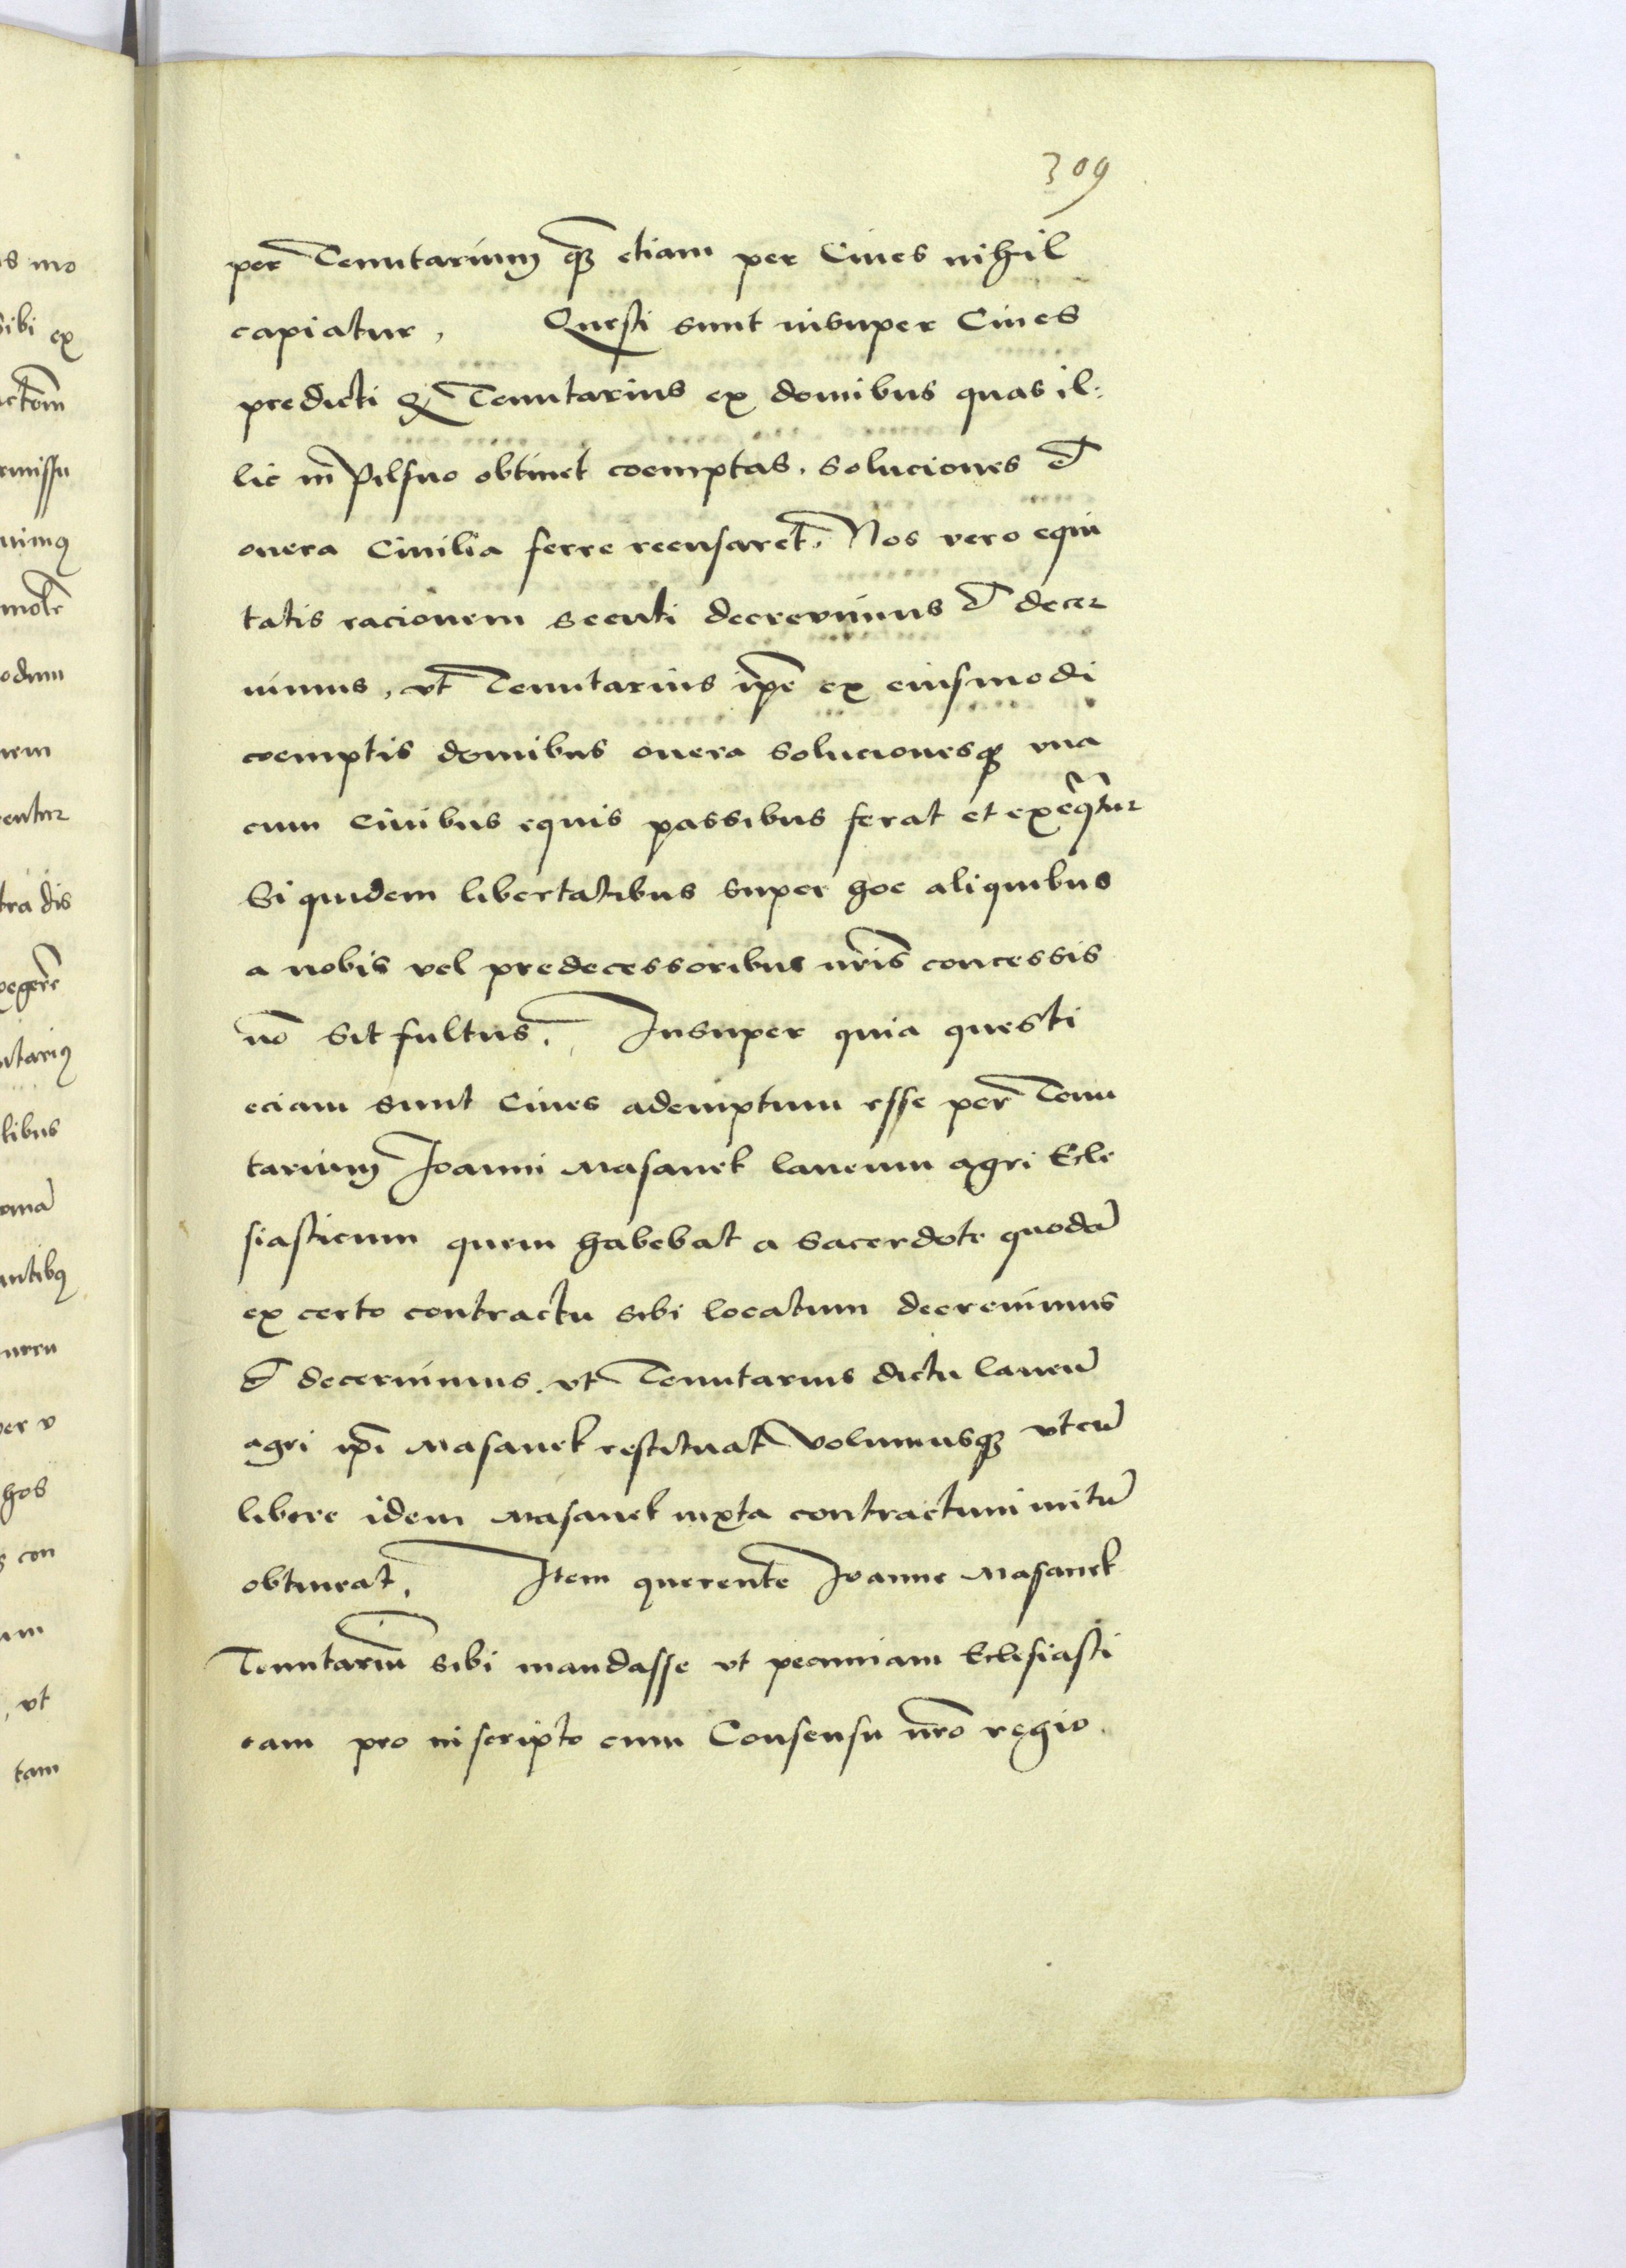 309
per Tenutarium q̃ꝫ etiam per Ciues nihil
capiatur, Questi sunt insuper Ciues
predicti ꝙ Tenutarius ex domibus quas il:
lic in Pilsno obtinet coemptas. soluciones et
onera Ciuilia ferre recusaret. Nos vero equi
tatis racionem secuti decreuimus et decer
nimus, vt Tenutarius ip̃e ex eiusmodi
coemptis domibus onera solucionesqꝫ vna
cum Ciuibus equis passibus ferat et exeq̃tur
Si quidem libertatibus super hoc aliquibus
a nobis vel predecessoribus nr̃is concessis
nõ sit fultus. Insuper quia questi
eciam sunt Ciues ademptum esse per Tenu
tarium Joanni Masanek laneum agri Ecle
siasticum quem habebat a sacerdote quodã
ex certo contractu sibi locatum decreuimus
et decernimus. vt Tenutarius dictũ laneũ
agri ip̃i Masanek restituat volumusqꝫ vt eũ
libere idem Masanek iuxta contractum initũ
obtineat. Item querente Joanne Masanek
Tenutariũ sibi mandasse vt pecuniam Eclesiasti
cam pro inscripto cum Consensu nr̃o regio